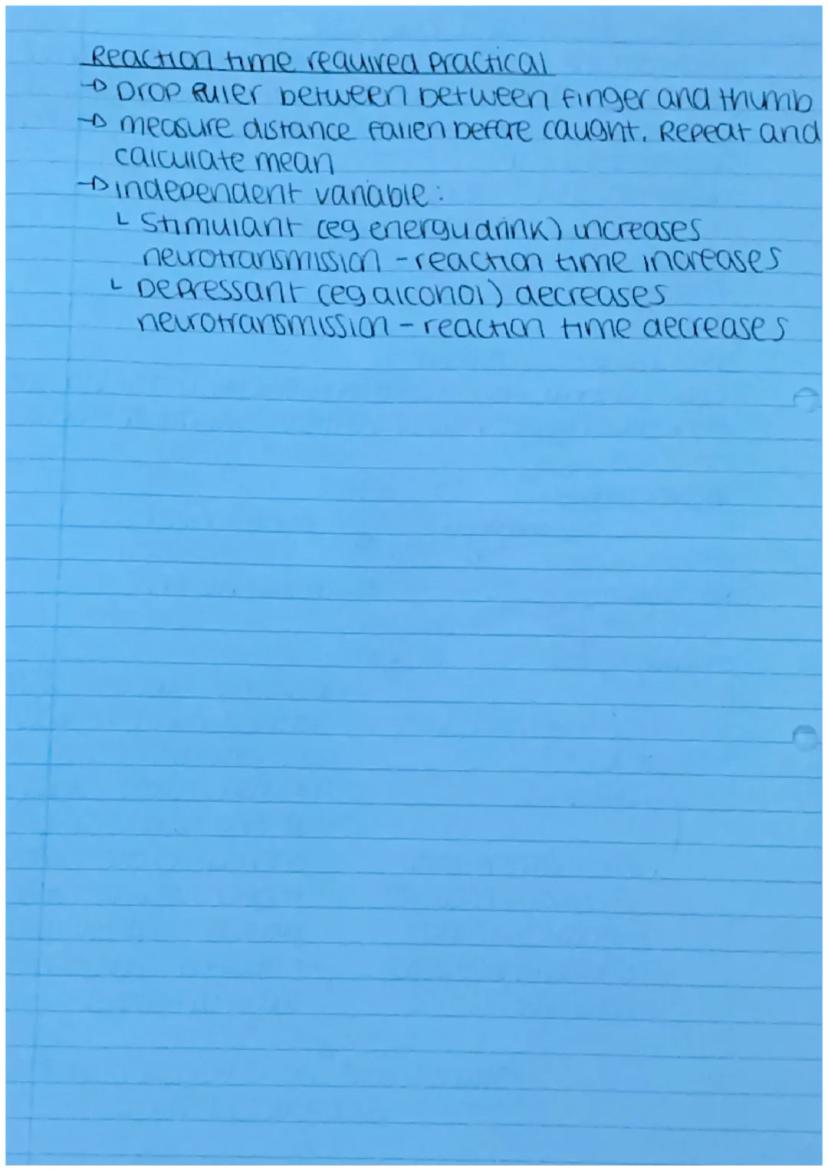 Reaction time required practical
→ Drop Ruler between between finger and thumb
→ measure distance fallen before caught. Repeat and
calculate mean
→ independent variable:
└ Stimulant (eg energy drink) increases
neurotransmission - reaction time increases
└ Depressant (eg alcohol) decreases
neurotransmission - reaction time decreases